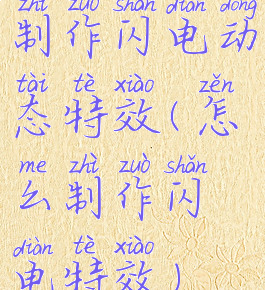 zhì zuò shǎn diàn dòng
制作闪电动
tài tè xiào zěn
态特效(怎
me zhì zuò shǎn
么制作闪
diàn tè xiào
电特效)